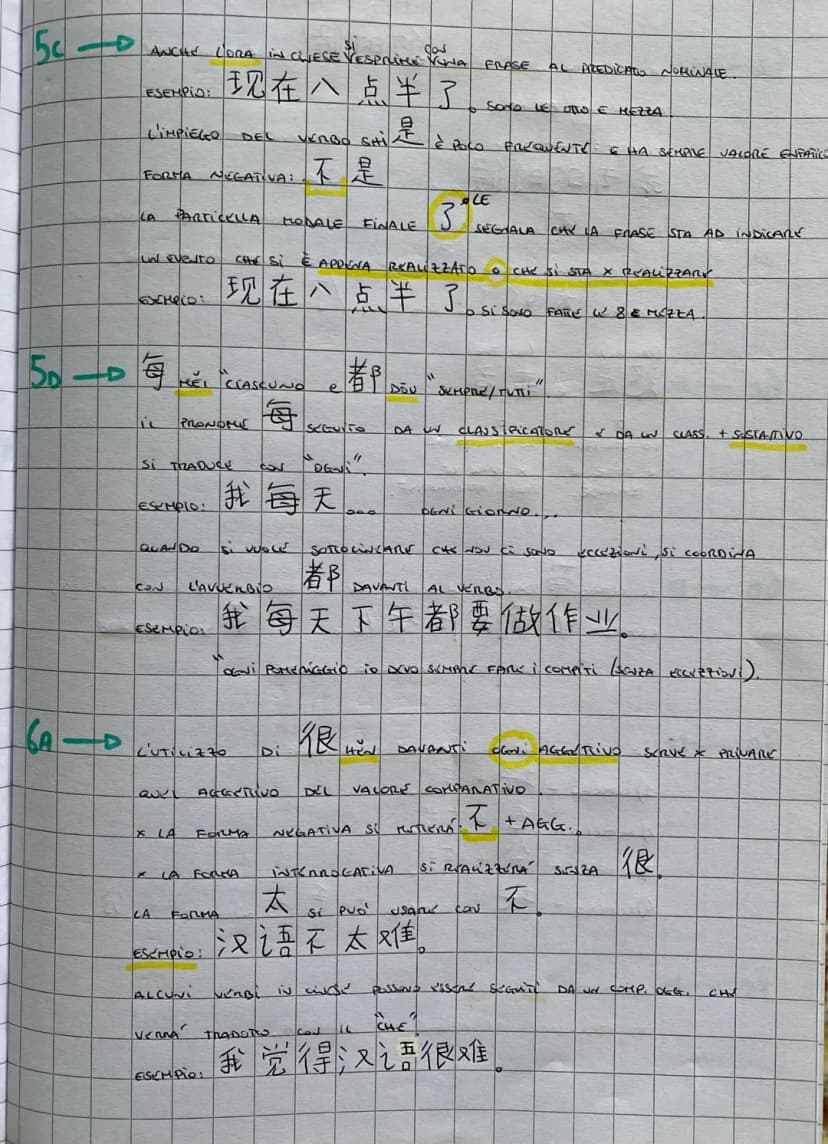 5C → ANCHE L'ORA IN CINESE SI ESPRIME CON UNA FRASE AL PREDICATO NOMINALE.
ESEMPIO: 现在八点半了。SONO LE OTTO E MEZZA
L'IMPIEGO DEL VERBO SHÌ 是 È POCO FREQUENTE E HA SEMPRE VALORE ENFATICO
FORMA NEGATIVA: 不是
LA PARTICELLA MODALE FINALE 了 LE SEGNALA CHE LA FRASE STA AD INDICARE
UN EVENTO CHE SI È APPENA REALIZZATO O CHE SI STA X REALIZZARE
ESEMPIO: 现在八点半了。SI SONO FATTE LE 8 E MEZZA.
5D → 每 MĚI "CIASCUNO E 都 DŌU "SEMPRE/TUTTI".
IL PRONOME 每 SEGUITO DA UN CLASSIFICATORE E DA UN CLASS. + SOSTANTIVO
SI TRADUCE CON "OGNI".
ESEMPIO: 我每天... OGNI GIORNO...
QUANDO SI VUOLE SOTTOLINEARE CHE NON CI SONO ECCEZIONI, SI COORDINA
CON L'AVVERBIO 都 DAVANTI AL VERBO.
ESEMPIO: 我每天下午都要做作业。
"OGNI POMERIGGIO IO DEVO SEMPRE FARE I COMPITI (SENZA ECCEZIONI).
6A → L'UTILIZZO DI 很 HĚN DAVANTI OGNI AGGETTIVO SERVE X PRIVARE
QUEL AGGETTIVO DEL VALORE COMPARATIVO.
X LA FORMA NEGATIVA SI METTERÁ: 不 + AGG.
X LA FORMA INTERROGATIVA SI REALIZZERÁ SENZA 很.
LA FORMA 太 SI PUÒ USARE CON 不.
ESEMPIO: 汉语不太难。
ALCUNI VERBI IN CINESE POSSONO ESSERE SEGUITI DA UN COMP. OGG. CHE
VERRÁ TRADOTTO CON IL "CHE".
ESEMPIO: 我觉得汉语很难。